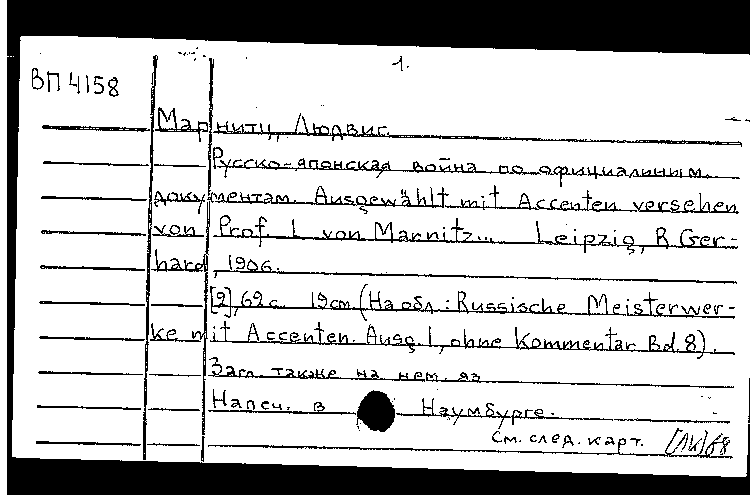 1.
ВП 4158
Марнитц, Людвиг.
Русско-японская война по официальным
документам. Ausgewählt mit Accenten versehen
von Prof. L. von Marnitz... Leipzig, R. Ger-
hard, 1906.
[2], 62 с. 19 см. (На обл.: Russische Meisterwer-
ke mit Accenten. Ausg. 1, ohne Kommentar. Bd. 8).
Загл. также на нем. яз.
Напеч. в Наумбурге.
См. след. карт. [ЛК] 68